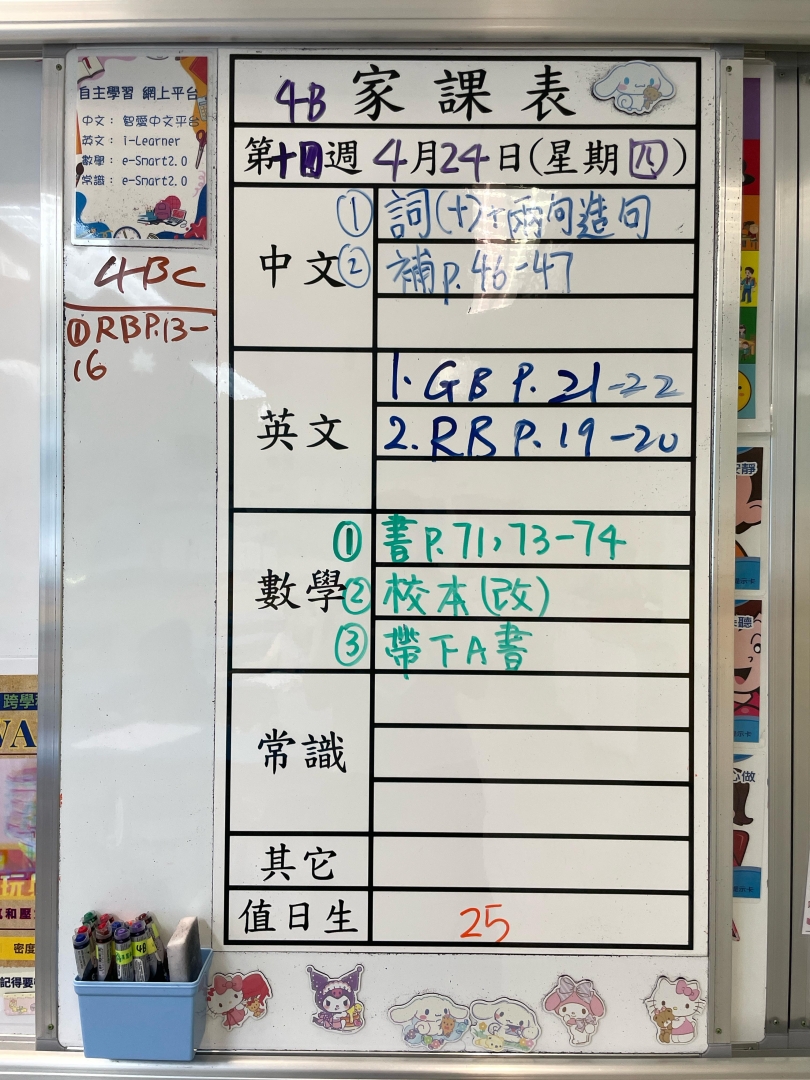 自主學習 網上平台
中文： 智愛中文平台
英文： i-Learner
數學： e-Smart2.0
常識： e-Smart2.0
4BC
① RB P.13-
16
4B 家課表
第十四週 4月24日(星期四)
中文
① 詞(十)+兩句造句
② 補p.46-47
英文
1. GB P. 21-22
2. RB P. 19-20
數學
① 書P.71,73-74
② 校本(改)
③ 帶下A書
常識
其它
值日生
25
4B
跨學
WA
玩
和壓
密度
記得要
安靜
示卡
聽
示卡
心做
示卡